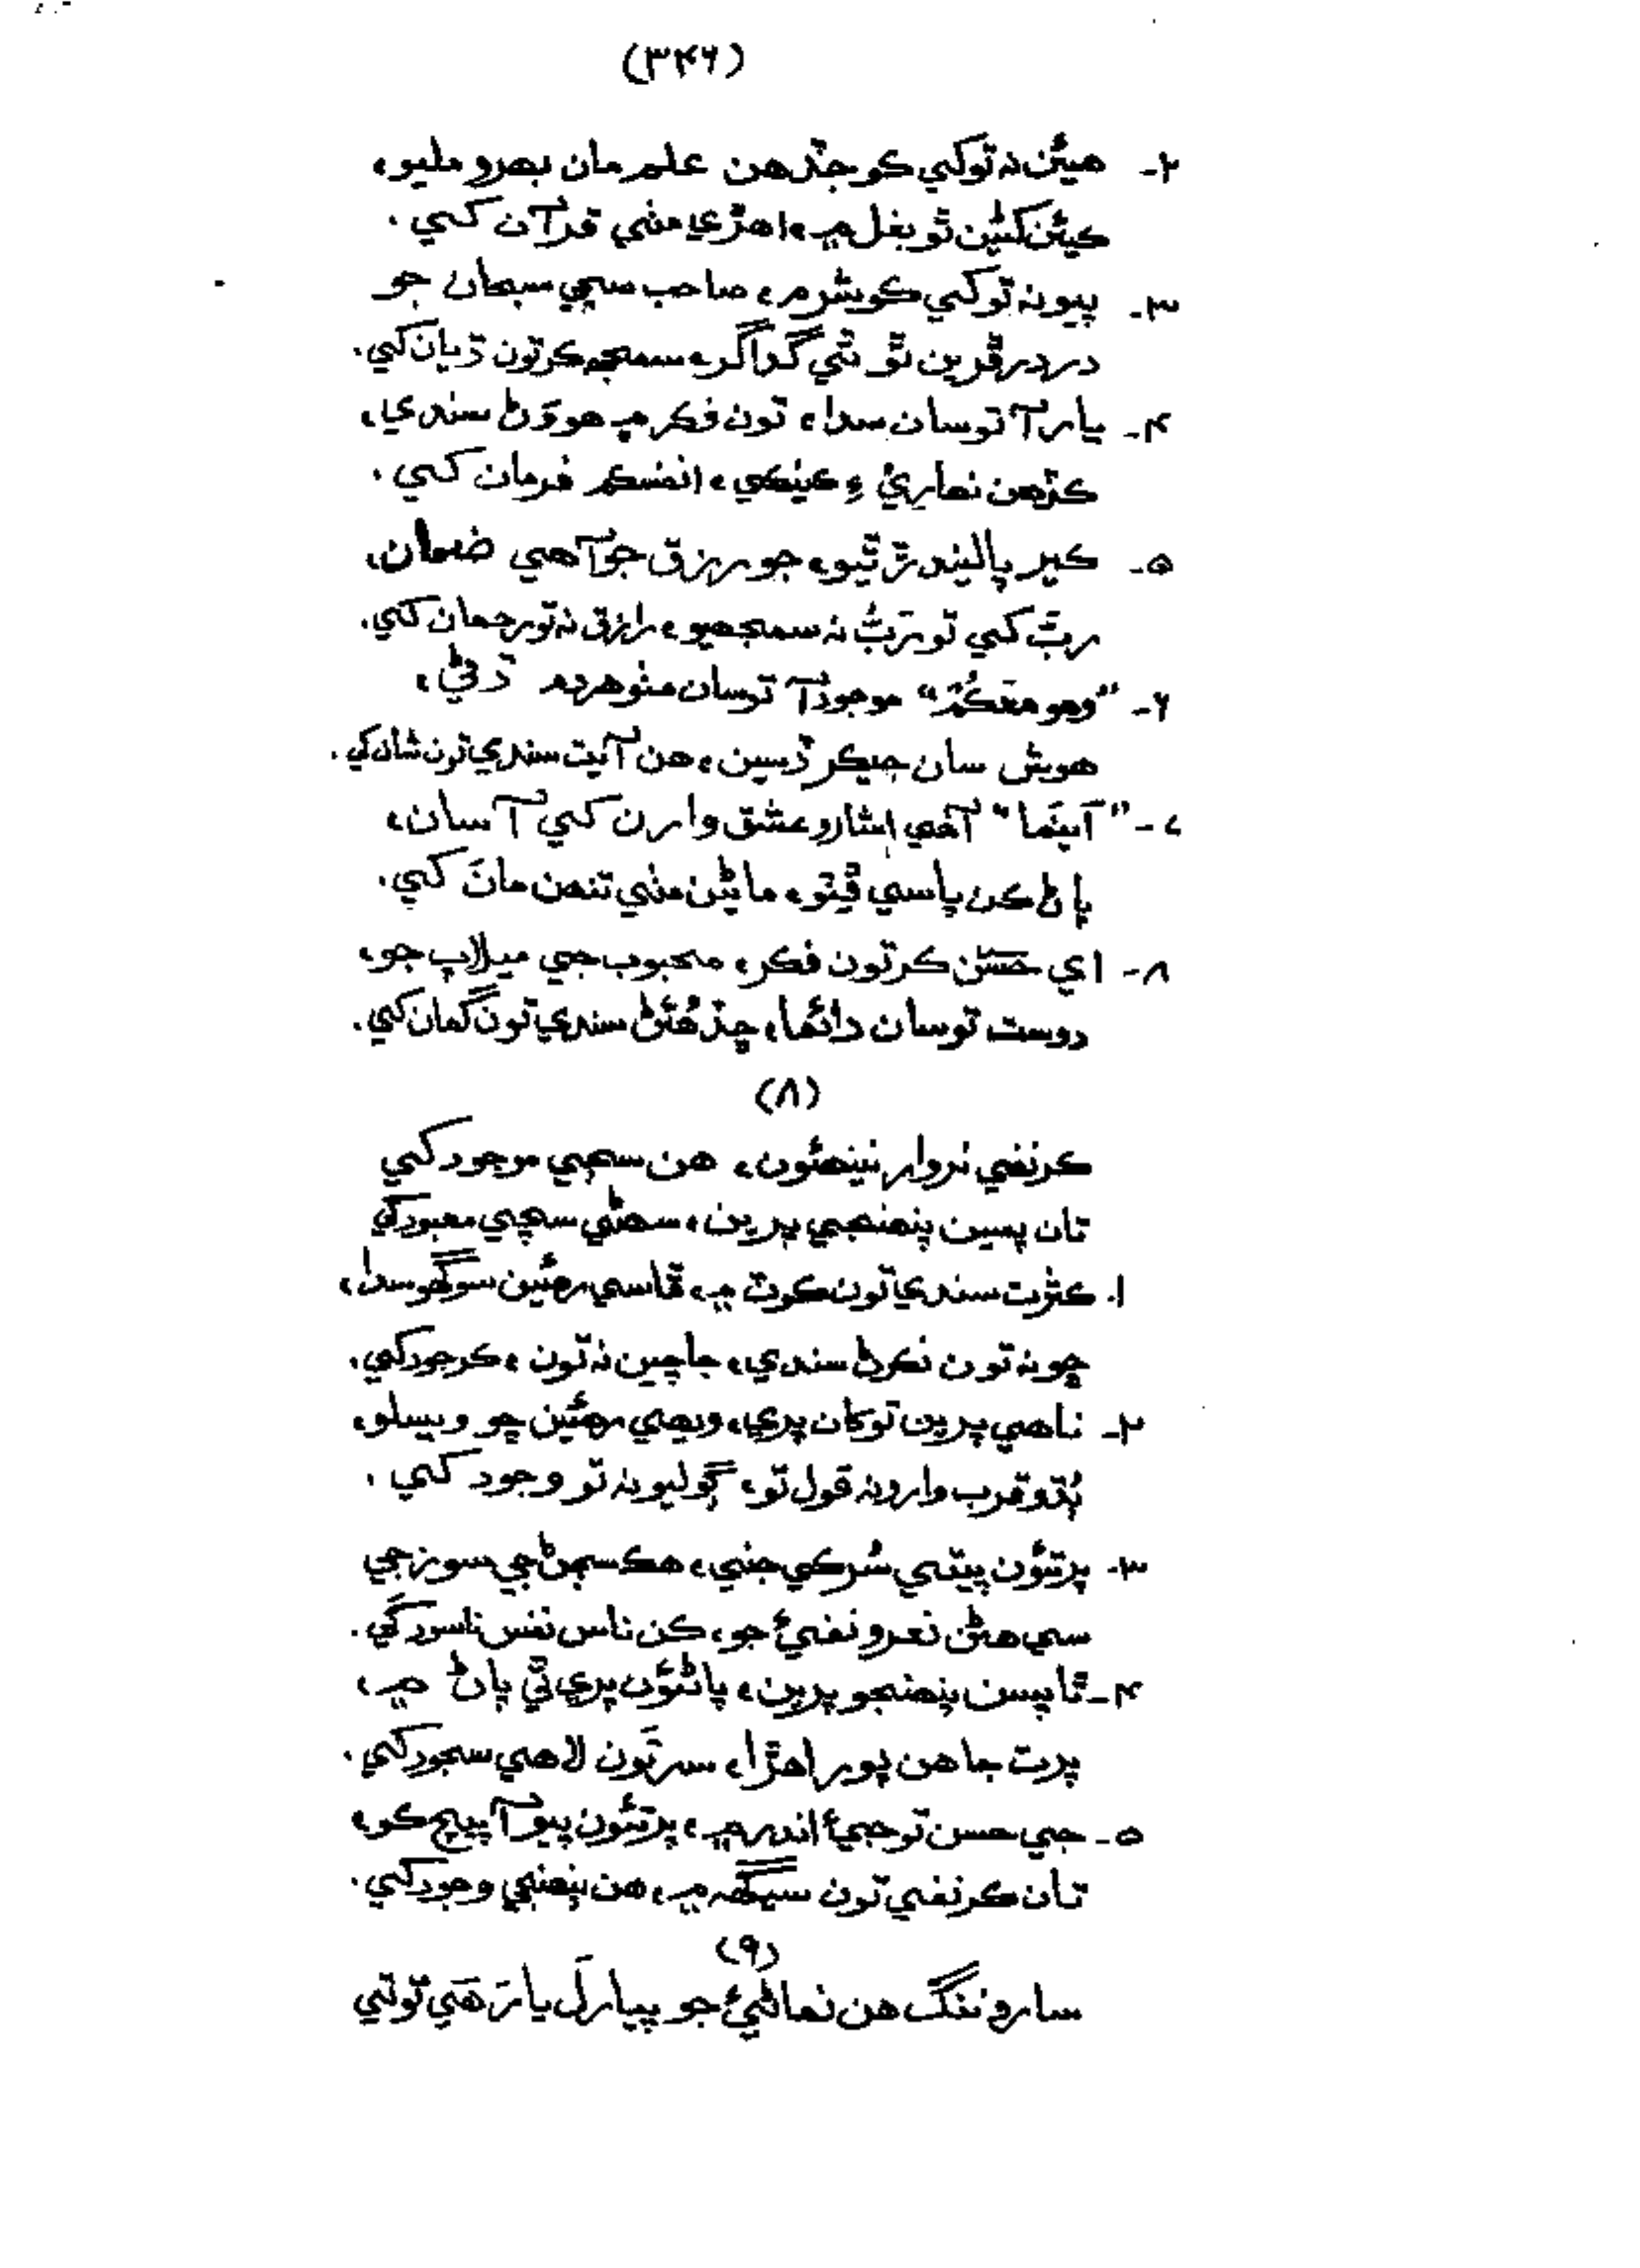 (۳۴۶)
۲- هيئن نه توکي ڪو جڏهن علم مان بهرو مليو،
ڪيئن کڻين ٿو بغل ۾، اهڙي مٺي قرآن کي.
۳- پيو نه توکي ڪو شرم، صاحب سچي سبحان جو
در در ڦرين ٿو ٿي گداگر، سمجھ ڪر تون ڌيان کي.
۴- يار آ توسان سدا، تون فڪر ۾ هوَڻ سندي،
ڪڏهن نهاريئي ڪينڪي، انفسڪم فرمان کي.
۵- ڪير پاليندڙ ٿيو، جو رزق جو آهي ضمان،
ربّ کي تو ربّ نه سمجهيو، رازق نه تو رحمان کي.
۶- "وهو معڪم" موجود آ توسان مٺو هردم ڌڻي،
هوش سان جيڪر ڏسين، هن آيت سندي تون شان کي.
۷- "اَينَما" آهي اشارو عشق وارن کي آسان،
پاڻ ڪن پاسي ڦٽو، ماڻين مٺي تنهن مانَ کي.
۸- اي حَسَنَ ڪر تون فڪر، محبوب جي ميلاپ جو،
دوست توسان دائما، ڇڏ هُئڻ سندي تون گمان کي.
(۸)
ڪر نفي نروار نينهئون، هن سڄي موجود کي
تان پسين پنهنجي پرين، سهڻي سچي معبود کي
۱. ڪثرت سندي تون ڪوٽ ۾، ڦاسي رهئين سوگهو سدا،
ڇو نه تون نڪرڻ سندي، جاچين نه تون، ڪر جود کي.
۲- ناهي پرين توکان پري، ويهي رهئين ڇو ويسلو،
ٻُڌو قرب وارو نه قول تو، ڳوليو نه تو وجود کي.
۳- پرتئون پيتي سُرڪي جني، هڪ سڄڻ جي سوز جي
سي هڻن نعرو نفيءَ جو، ڪن ناس نفس ناسود کي.
۴- تا پسن پنهنجو پرين، پاڻئون پري ٿي پاڻ ۾،
پرت جا هن پور اهڙا، سر تون لاهي سجود کي.
۵- جي حسن توجيءَ اندر ۾، پرتئون پيو آ پيچ ڪو،
تان ڪر نفي تون سيگهه ۾، هن پنهنجي وجود کي.
(۹)
سارو ننگ هن نماڻيءَ جو پيارل يار هَي تو تي